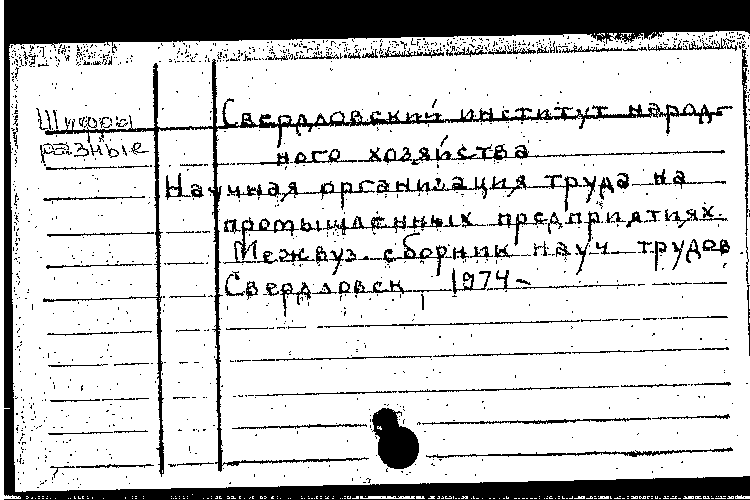 Шифры
разные
Свердловский институт народ-
ного хозяйства
Научная организация труда на
промышленных предприятиях.
Межвуз. сборник науч. трудов
Свердловск, 1974-